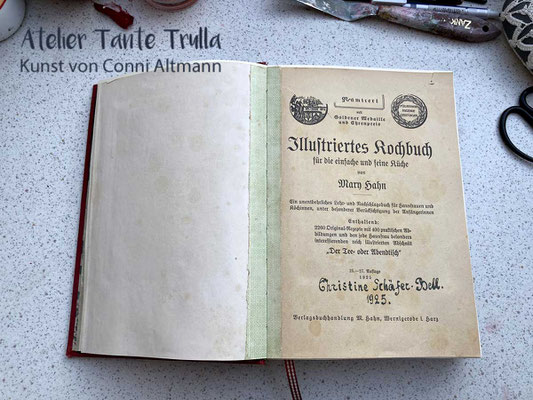 Atelier Tante Trulla
Kunst von Conni Altmann
Prämiiert
mit
Goldener Medaille
und Ehrenpreis
Illustriertes Kochbuch
für die einfache und feine Küche
von
Mary Hahn
Ein unentbehrliches Lehr- und Nachschlagebuch für Hausfrauen und
Köchinnen, unter besonderer Berücksichtigung der Anfängerinnen
Enthaltend:
2200 Original-Rezepte mit 400 praktischen Ab-
bildungen und den jede Hausfrau besonders
interessierenden reich illustrierten Abschnitt
„Der Tee- oder Abendtisch“
Auflage
Christine Schäfer-Bell.
1925.
Verlagsbuchhandlung M. Hahn, Wernigerode i. Harz